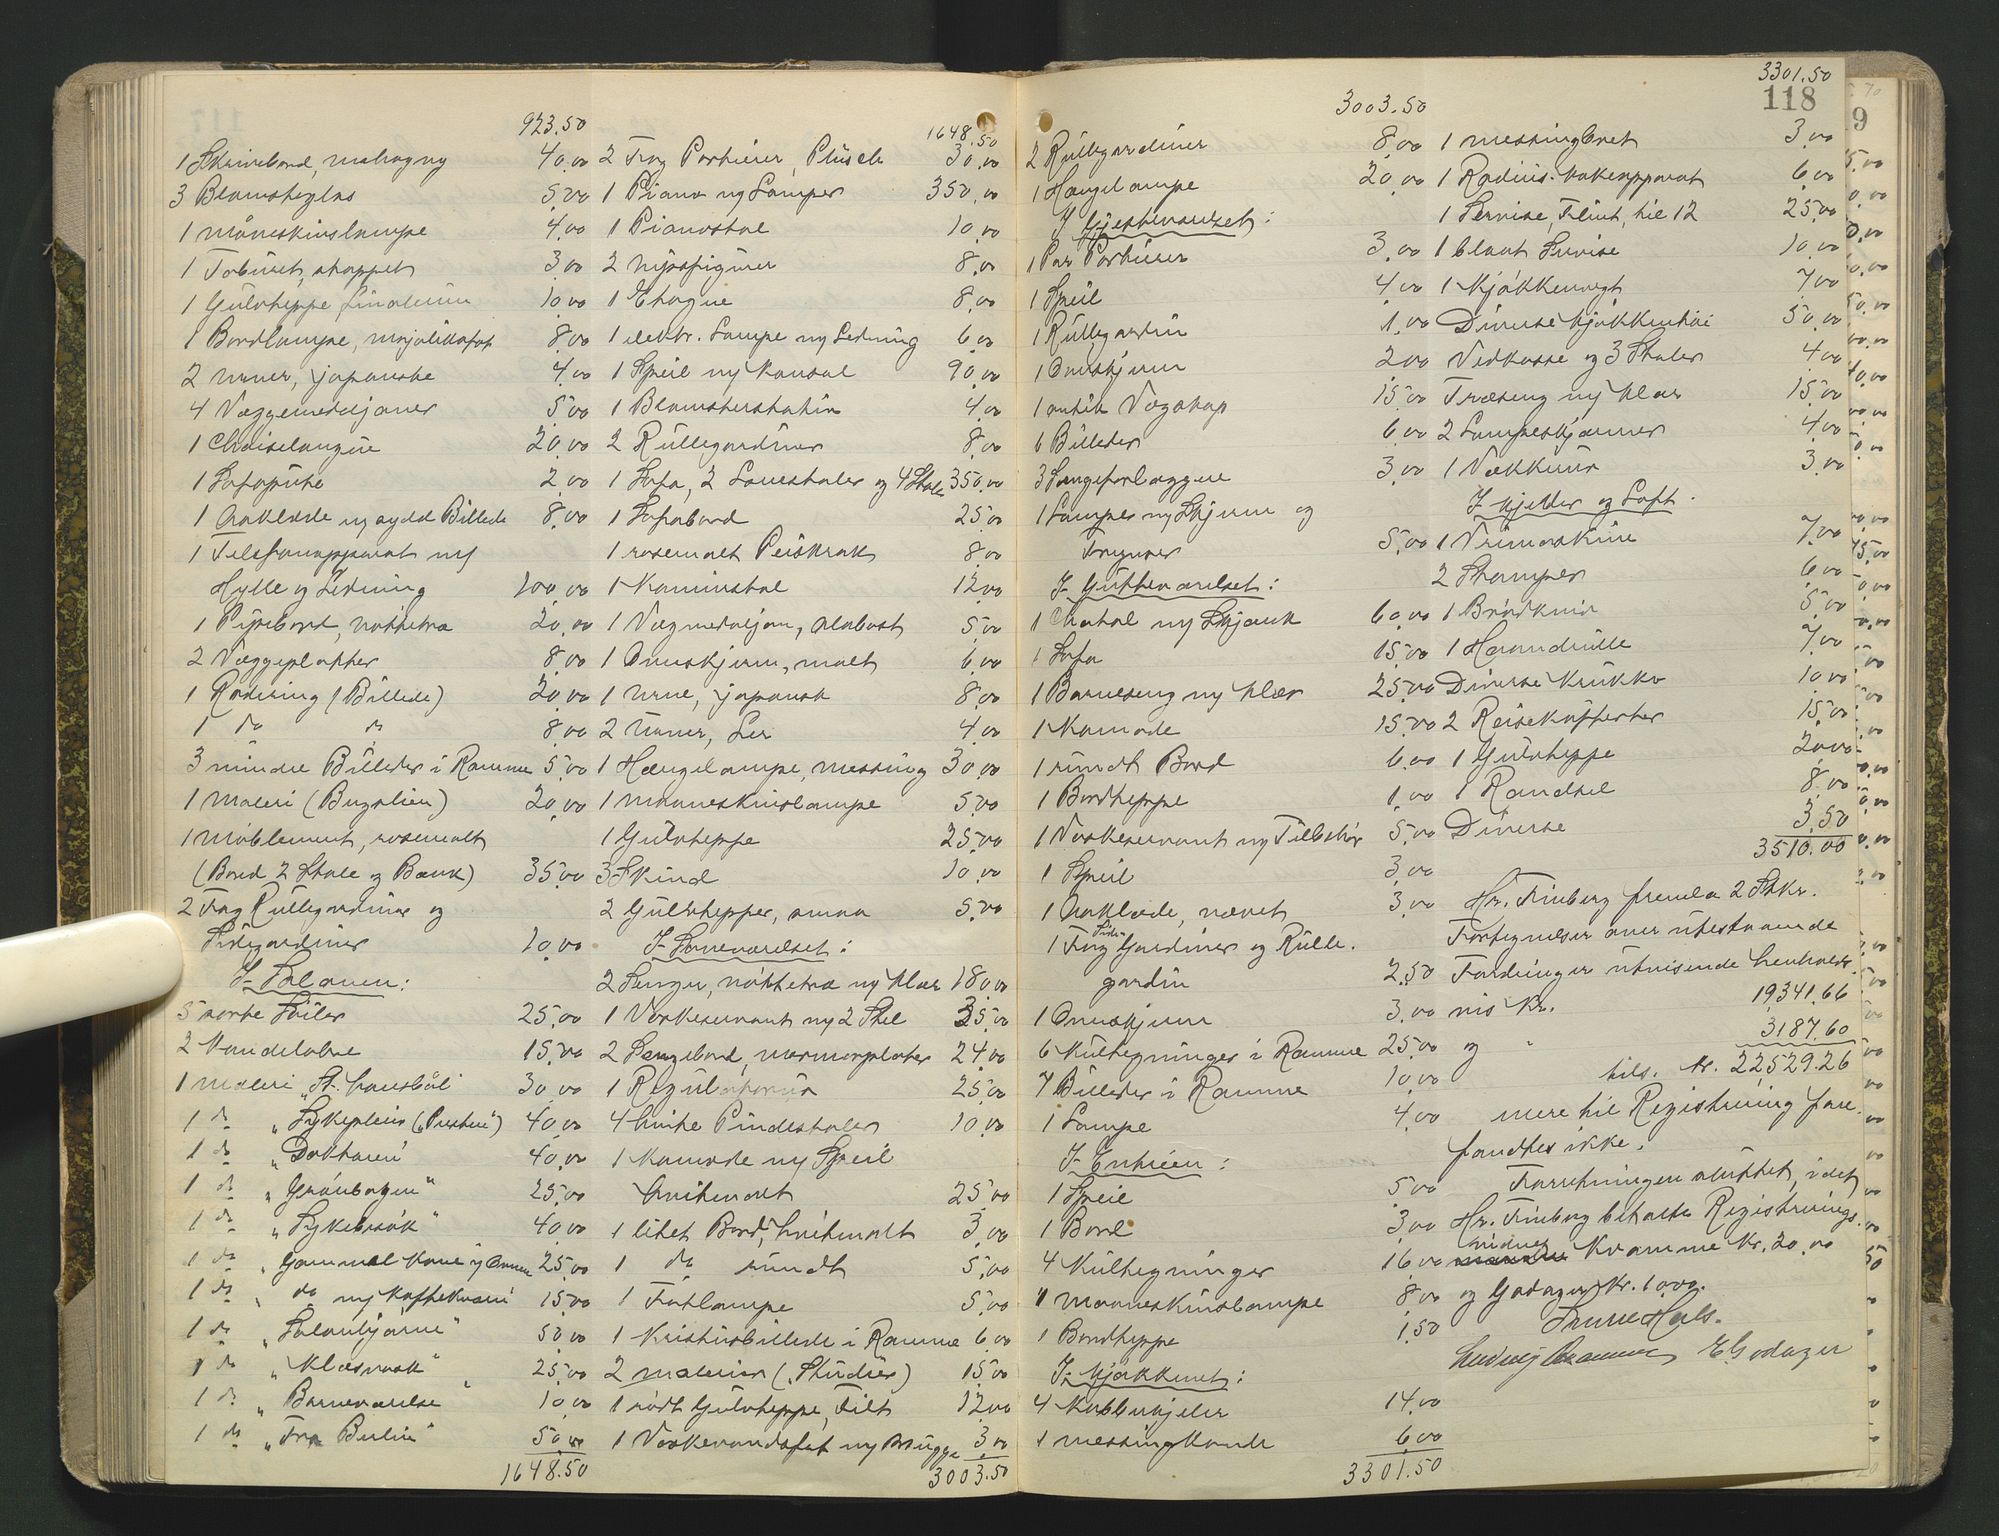 923.50
1 Skrivebord, mahogny 40,00
3 Blomsterglas 5,00
1 måneskinslampe 4,00
1 Taburet, stoppet 3,00
1 Gulvteppe Linoleum 10,00
1 Bordlampe, majolikafat 8,00
2 urner, japanske 4,00
4 Væggemedaljoner 5,00
1 Chaiselongue 20,00
1 Sofapute 2,00
1 Aaklæde og sydd Billede 8,00
1 Telefonapparat m/
Hylle og Ledning 100,00
1 Pipebord, nøttetræ 20,00
2 Væggeplatter 8,00
1 Radering (Billede) 20,00
1 do do 8,00
3 mindre Billeder i Ramme 5,00
1 maleri (Bugplien) 20,00
1 møblement, rosemalt
(Bord 2 Stole og Bænk) 35,00
2 Fag Rullegardiner og
Sidegardiner 10,00
I Salonen:
5 sorte Søiler 25,00
2 Kandelabre 15,00
1 maleri "St. Hansbål" 30,00
1 do "Sykepleie ("Presten") 40,00
1 do "Doktoren" 40,00
1 do "Grønbogen" 25,00
1 do "Sykebesøk" 40,00
1 do "Gammel Kone og Barn 25,00
1 do " do m/ Kaffekværn 15,00
1 do "Salonhjørne" 50,00
1 do "Klæsvask" 25,00
1 do "Barneværelse" 10,00
1 do "Fra Berlin" 50,00
1648.50
1648.50
2 Fag Portierer, Plüsch 30,00
1 Piano m/ Lamper 350,00
1 Pianostol 10,00
2 nipsfigurer 8,00
1 Etagere 8,00
1 elektr. Lampe m/ Ledning 6,00
1 Speil m/ Konsol 90,00
1 Blomsterstativ 4,00
2 Rullegardiner 8,00
1 Sofa, 2 Lænestoler og 4 Stoler 350,00
1 Sofabord 25,00
1 rosemalt Peiskrak 8,00
1 Kaminstol 12,00
1 Vægmedaljon, Alabast 5,00
1 Ovnskjerm, malt 6,00
1 urne, japansk 8,00
2 urner, Ler 4,00
1 Hængelampe, messing 30,00
1 maaneskinslampe 5,00
1 Gulvteppe 25,00
3 Skind 10,00
2 Gulvtepper, smaa 5,00
I Soveværelset:
2 Senger, nøttetræ m/ klær 180,00
1 Vaskeservant m/ 2 Stel 35,00
2 Sengebord, marmorplater 24,00
1 Regulatorur 25,00
4 hvite Pindestoler 10,00
1 Komode m/ Speil
hvitmalt 25,00
1 litet Bord, hvitmalt 3,00
1 do rundt 5,00
1 Fotlampe 5,00
1 Kristusbillede i Ramme 6,00
2 malerier (Studier) 15,00
1 rødt Gulvteppe, Filt 12,00
1 Vaskevandsfat m/ Mugge 3,00
3003.50
3003.50
2 Rullegardiner 8,00
1 Hængelampe 20,00
I Gjesteværelset:
1 Par Portierer 3,00
1 Speil 4,00
1 Rullegardin 1,00
1 Ovnskjerm 2,00
1 antik Vægskap 15,00
6 Billeder 6,00
3 Sengeforlæggere 3,00
1 Lampe m/ Skjerm og
Frynser 5,00
I Gutteværelset:
1 Chatol m/ Skjænk 60,00
1 Sofa 15,00
1 Barneseng m/ klær 25,00
1 Komode 15,00
1 rundt Bord 6,00
1 Bordteppe 1,00
1 Vaskeservant m/ Tilbehør 5,00
1 Speil 3,00
1 Aaklæde, vævet 3,00
1 Fag Side Gardiner og Rulle-
gardin 2,50
1 Ovnskjerm 3,00
6 Kultegninger i Ramme 25,00
7 Billeder i Ramme 10,00
1 Lampe 4,00
I Entreen:
1 Speil 5,00
1 Bord 3,00
4 Kultegninger 16,00
1 maaneskinslampe 8,00
1 Bordteppe 1,50
I Kjøkkenet:
4 Kobberkjeler 14,00
1 messingkande 6,00
3301.50
3301.50
118
1 messingbret 3,00
1 Radius-kokeapparat 6,00
1 Servise, Flint, til 12 25,00
1 blaat Servise 10,00
1 Kjøkkenvegt 7,00
Diverse Kjøkkentøi 50,00
Vedkasse og 3 Stoler 4,00
Træseng m/ klær 15,00
2 Lampeskjermer 4,00
1 Vækkeur 3,00
I Kjelder og Loft.
1 Vrimaskine 7,00
2 Stamper 6,00
1 Brødkniv 5,00
1 Haandrulle 7,00
Diverse Krukker 10,00
2 Reisekufferter 15,00
1 Gulvteppe 20,00
1 Randsel 8,00
Diverse 3,50
3510.00
Hr. Finborg fremla 2 Stkr.
Fortegnelser over utestaaende
Fordringer utvisende henholds-
vis Kr. 19,341.66
og " 3187.60
tils. kr. 22529.26
mere til Registrering fore-
fandtes ikke.
Forretningen sluttet, idet
Hr. Finborg betalte Registrerings-
vidner Kvamme Kr. 20,00
og Godager Kr. 10,00.
Ludvig Kvamme E. Godager